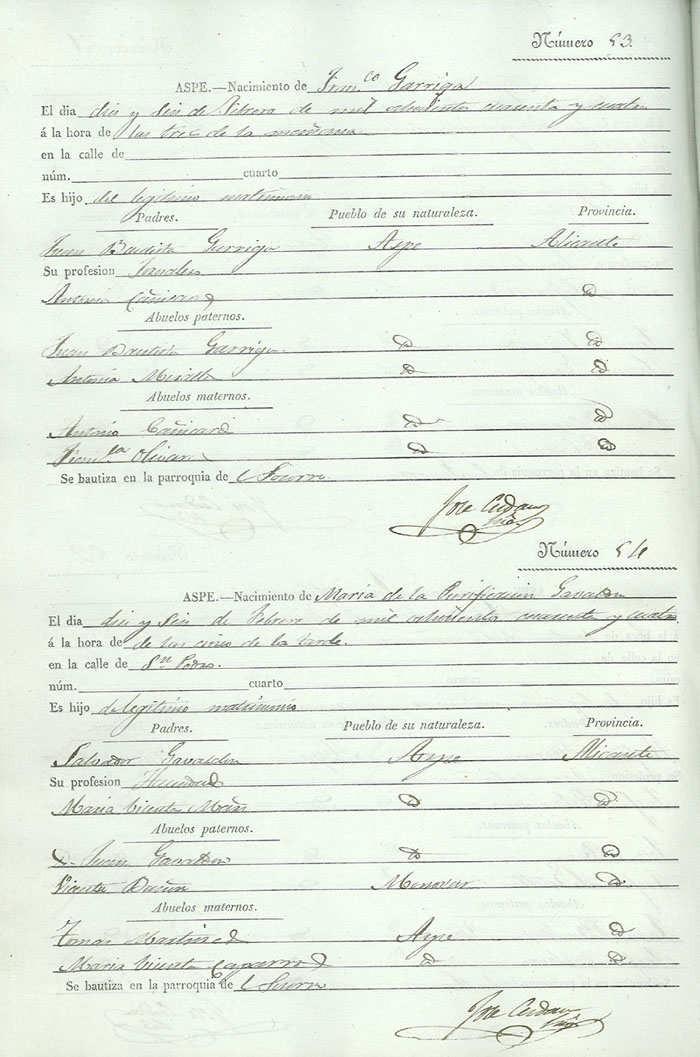 Número 53.
ASPE.—Nacimiento de Fran.co Garriga
El dia diez y seis de Febrero de mil ochocientos cuarenta y cuatro
á la hora de las tres de la mañana
en la calle de
núm. cuarto
Es hijo de legitimo matrimonio
Padres. Pueblo de su naturaleza. Provincia.
Juan Bautista Garriga Aspe Alicante
Su profesion
Antonia Cañizares Id
Abuelos paternos.
Juan Bautista Garriga Id Id
Antonia Id Id
Abuelos maternos.
Antonio Cañizares Id Id
Fran.ca Olivares Id Id
Se bautiza en la parroquia de el Socorro
Jose Cerdan
Número 54
ASPE.—Nacimiento de María de la Purificacion Gavaldon
El dia diez y seis de Febrero de mil ochocientos cuarenta y cuatro
á la hora de de las cinco de la tarde.
en la calle de Sn Pedro.
núm. cuarto
Es hijo de legitimo matrimonio
Padres. Pueblo de su naturaleza. Provincia.
Salvador Gavaldon Aspe Alicante
Su profesion
Maria Vicenta Id Id
Abuelos paternos.
Juan Gavaldon Id Id
Vicenta Monovar Id
Abuelos maternos.
Tomas Martinez Aspe Id
Maria Vicenta Caparros Id Id
Se bautiza en la parroquia de el Socorro
Jose Cerdan